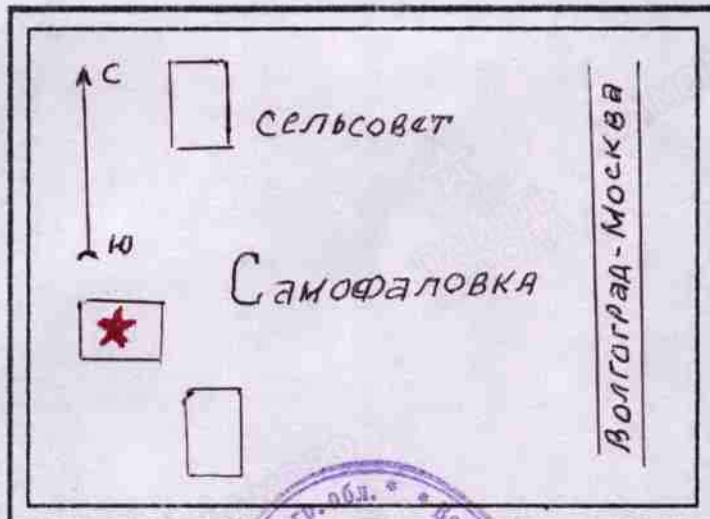 С
сельсовет
Ю
Самофаловка
Волгоград-Москва
гр. обл. *